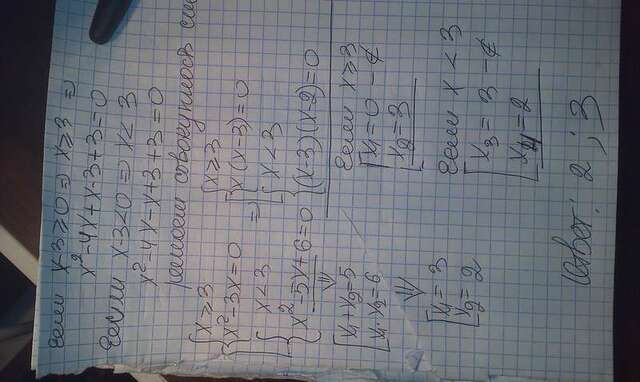 если x-3≥0 ⇒ x≥3 ⇒
x²-4x+x-3+3=0
если x-3<0 ⇒ x<3
x²-4x-x+3+3=0
решаем совокупность сис
{x≥3
{x²-3x=0
{x<3
{x²-5x+6=0
⇒
[{x≥3
{x(x-3)=0
{x<3
{(x-3)(x-2)=0
⇓
[x₁+x₂=5
[x₁·x₂=6
⇓
[x₁=3
[x₂=2
если x≥3
[x₁=0 -∉
[x₂=3
если x<3
[x₃=3 -∉
[x₄=2
Ответ: 2; 3